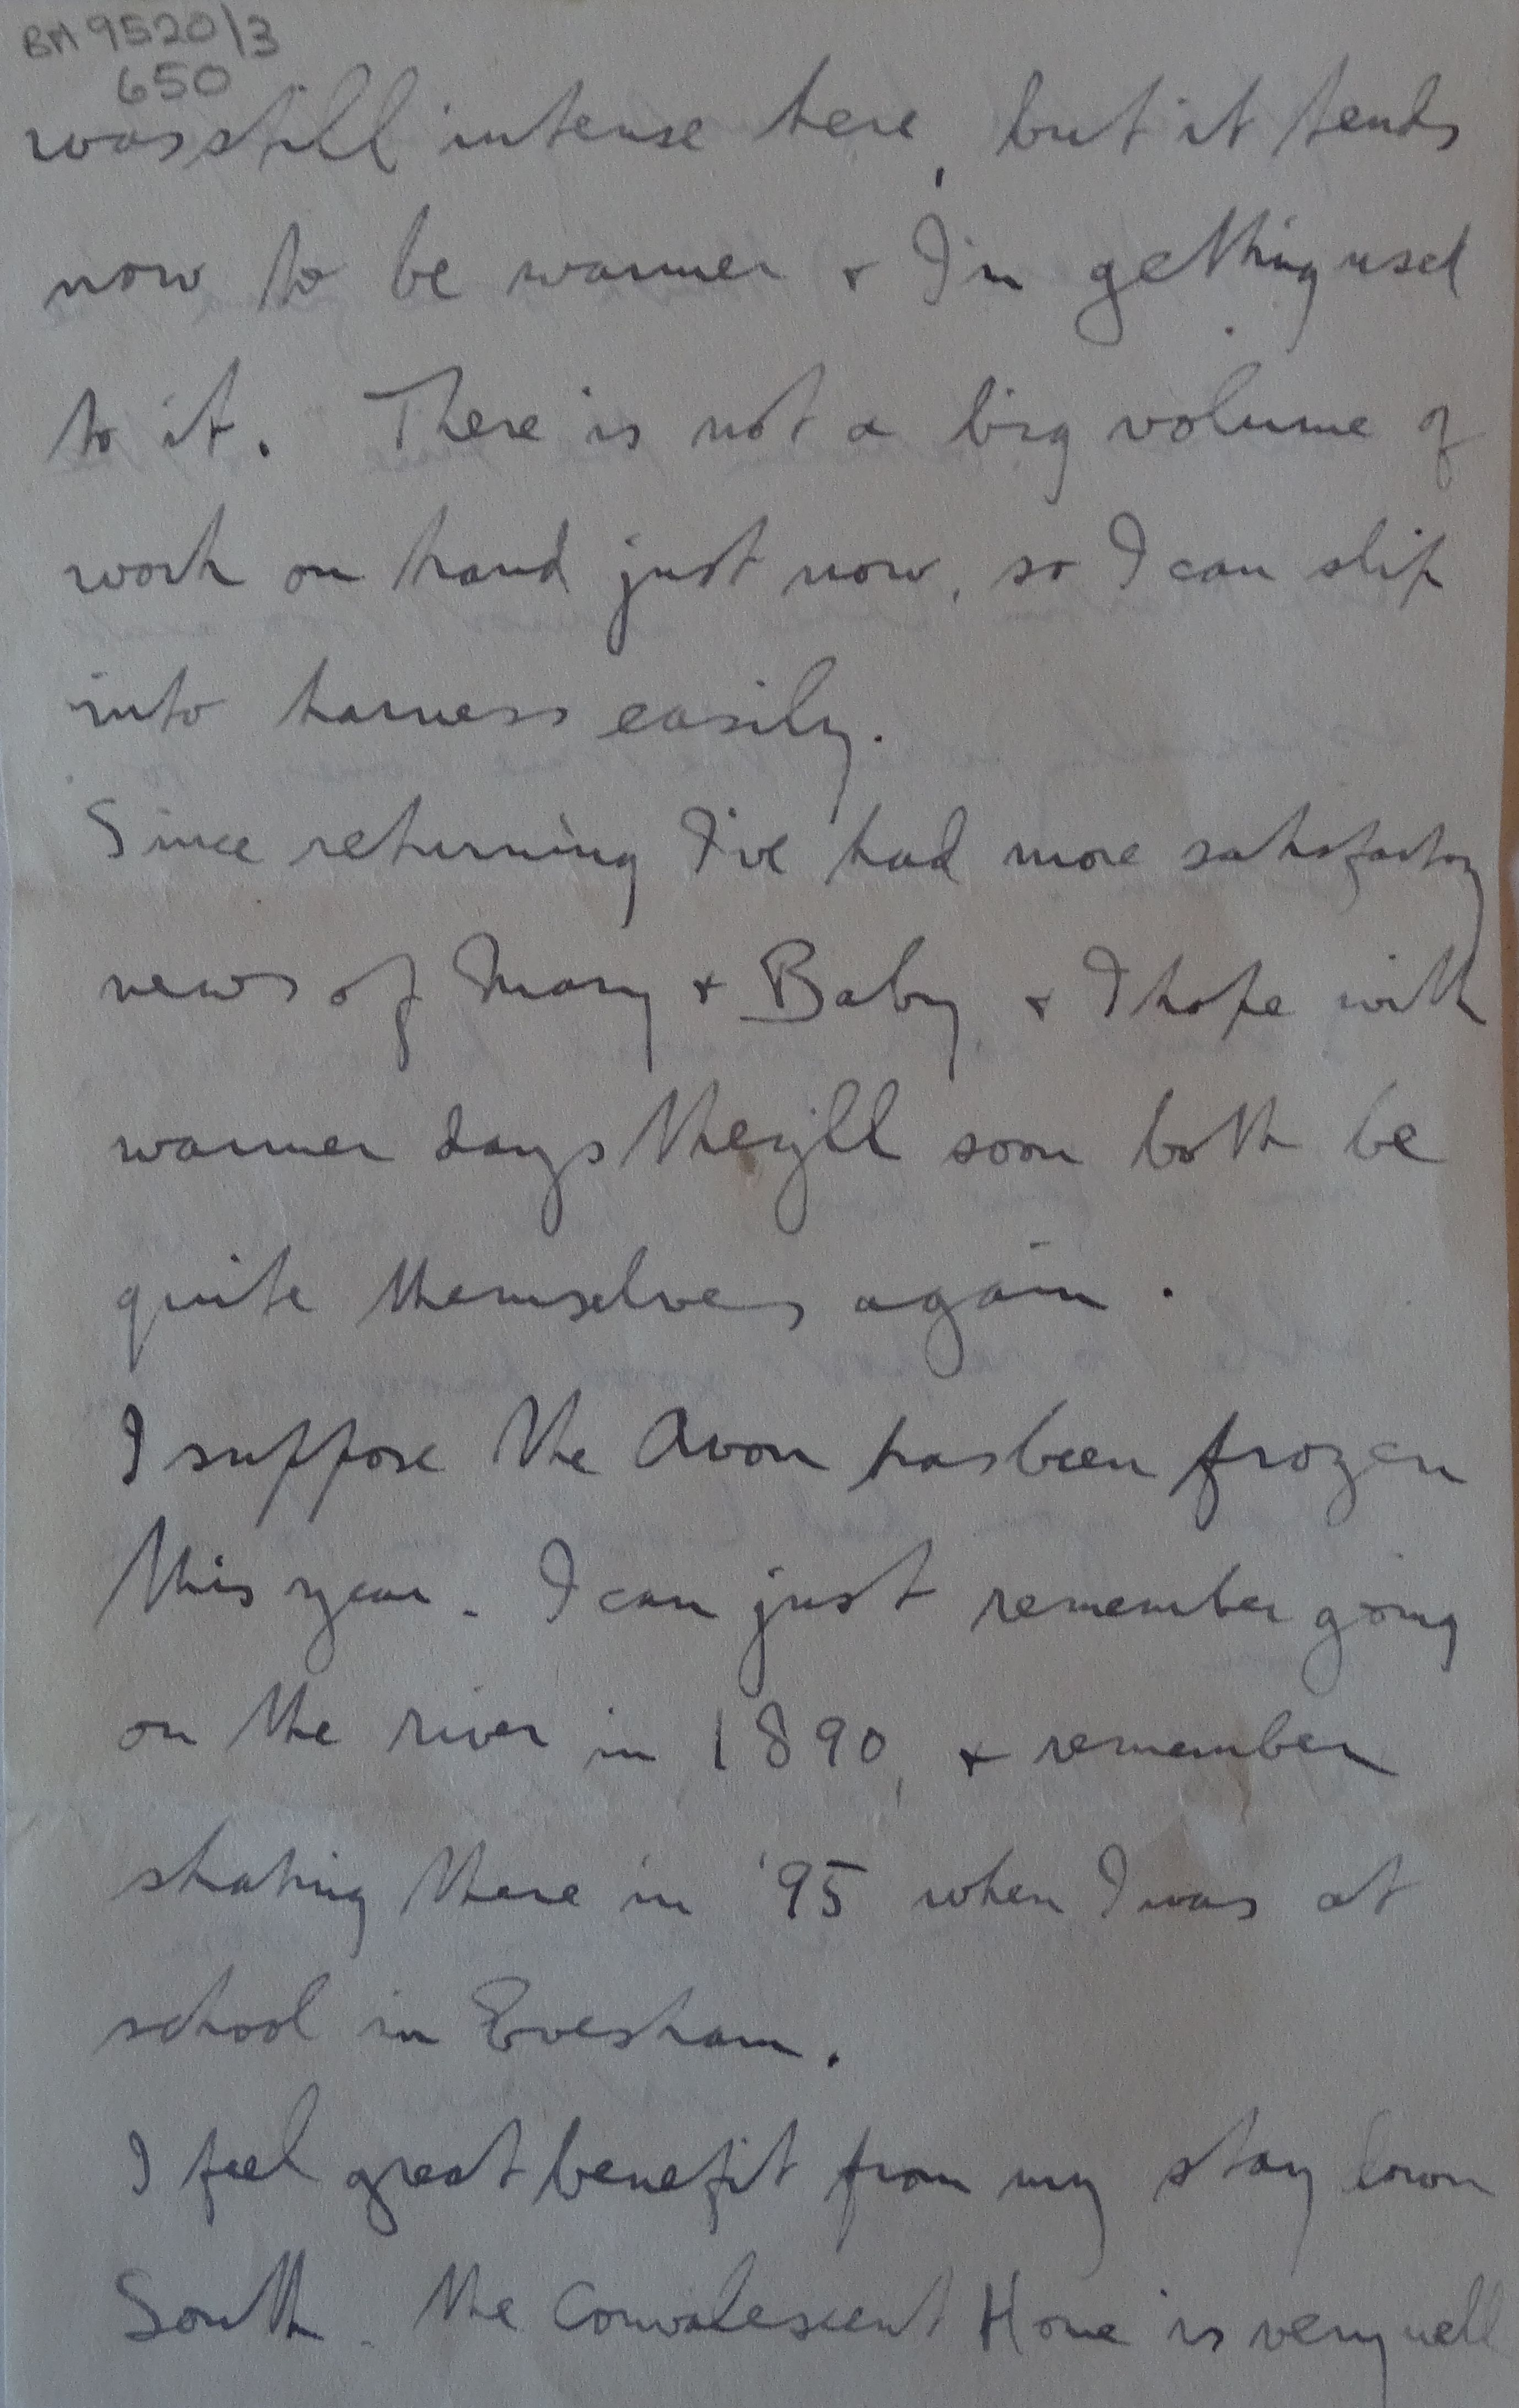 BM 9520/3
650
was still intense here, but it tends
now to be warmer & I'm getting used
to it. There is not a big volume of
work on hand just now, so I can slip
into harness easily.
Since returning I've had more satisfactory
news of Mary & Baby, & I hope with
warmer days they'll soon both be
quite themselves again.
I suppose the Avon has been frozen
this year. I can just remember going
on the river in 1890, & remember
skating there in '95 when I was at
school in Evesham.
I feel great benefit from my stay down
South. The Convalescent Home is very well